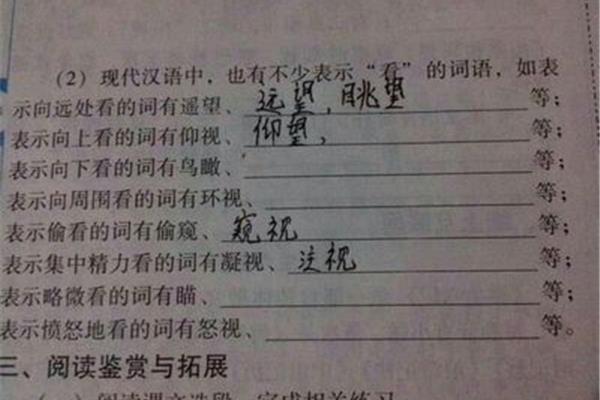 (2)现代汉语中，也有不少表示“看”的词语，如表
示向远处看的词有遥望、远望，眺望等；
表示向上看的词有仰视、仰望，等；
表示向下看的词有鸟瞰、等；
表示向周围看的词有环视、等；
表示偷看的词有偷窥、窥视等；
表示集中精力看的词有凝视、注视等；
表示略微看的词有瞄、等；
表示愤怒地看的词有怒视、等。
三、阅读鉴赏与拓展
(一)阅读课文选段，完成相关练习